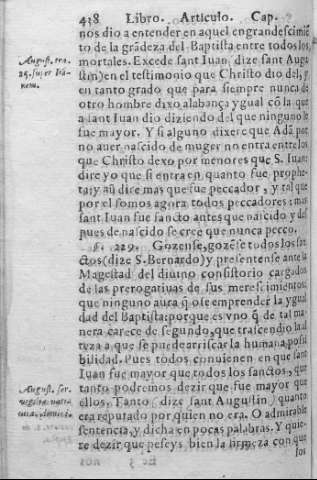 438 Libro. Articulo. Cap.
nos dio a entender en aquel engrandescimiẽ
to de la grãdeza del Baptista entre todos los
mortales. Excede sant Iuan (dize sant Augu
stin) en el testimonio que Christo dio del, y
en tanto grado que para siempre nunca de
otro hombre dixo alabança ygual cõ la que
a sant Iuan dio diziendo del que ninguno le
fue mayor. Y si alguno dixere que Adã por
no auer nascido de muger no entra entre los
que Christo dexo por menores que S. Iuan:
dire yo que si entra en quanto fue prophe-
ta: y aũ dire mas que fue peccador, y tal que
por el somos agora todos peccadores: mas
sant Iuan fue sancto antes que nascido y des
pues de nascido se cree que nunca pecco.
§. 229. Gozense, gozẽse todos los sãc
ctos (dize S. Bernardo) y presentense ante la
Magestad del diuino consistorio cargados
de las prerogatiuas de sus merescimientos:
que ninguno aura q̃ ose emprender la ygual
dad del Baptista: porque es vno q̃ de tal ma
nera carece de segundo, que trasciende la al
teza a que se puede arriscar la humana possi
bilidad. Pues todos conuienen en que sant
Iuan fue mayor que todos los sanctos, que
tanto podremos dezir que fue mayor que
ellos. Tanto (dize sant Augustin) quanto
era reputado por quien no era. O admirable
sentencia, y dicha en pocas palabras. Y quie-
re dezir que peseys bien la firmeza con que
los
August. tra.
August. ser.